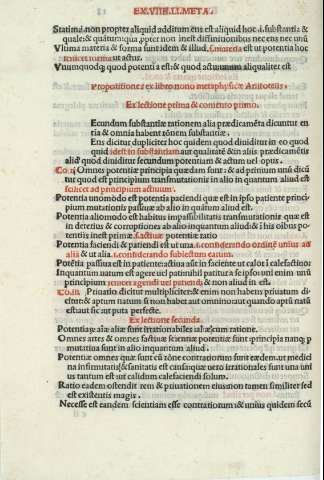 EX.VIIII.LI.META.
Statimꝗ non propter aliquid additum ens est aliquid hoc .i. substantia &
quale: & quātum: quia ppter non inest diffinitionibus nec ens nec unū
Vltima materia & forma sunt idem & illud .s. materia est ut potentia hoc
sc̄ilicet forma ut actus.
Vnumquodq; quod potentia est: & quod actu unum aliqualiter est
Propositiones ex libro nono metaphysicæ Aristotelis,
Ex lectione prima & comento primo.
Secundum substantiæ rationem alia prædicamēta dicuntur en
tia & omnia habent rōnem substantiæ.
Ens dicitur dupliciter hoc quidem quod diuiditur in eo quod
quid id est in substantiam aut qualitatē & in alia prædicamēta
aliud quod diuiditur secundum potentiam & actum uel opus.
Co.ii. Omnes potentiæ principia quædam sunt: & ad primum unū dicū
tur quod est principium transmutationis in alio in quantum aliud est
scilicet ad principium actiuum.
Potentia uno modo est potentia patiendi quæ est in ipso patiente princi
pium mutationis passiuæ ab alio in quantum aliud est.
Potentia alio modo est habitus impassibilitatis transmutationis quæ est
in deterius & corruptiones ab alio in quantum aliud: & i his oībus po
tentiis inest primæ .s. actiuæ potentiæ ratio
Potentia faciendi & patiendi est ut una .s. considerando ordinē unius ad
aliā & ut alia .s. considerando subiectum earum.
Potētia passiua est in patiente: actiua aūt in faciente ut calor ī calefactiuo:
Inquantum natum est agere uel pati nihil patitur a se ipso uni enim unū
principium scilicet agendi uel patiendi: & non aliud in est.
Co.iii. Priuatio dicitur multipliciter: & enim non habens priuatum di
citur: & aptum natum si non habet aut omnino: aut quando aptū natū
est: aut sic aut puta perfecte.
Ex lectione secunda.
Potentiaꝝ aliæ sunt irrationabiles: aliæ cum ratione.
Omnes artes & omnes factiuæ scientiæ potentiæ sunt principia nanq; p
mutatiua sunt in alio inquantum aliud.
Potentiæ omnes quæ sunt cū rōne contrariorum sunt eædem: ut medici
na infirmitatis & sanitatis est causa: quæ uero irrationales sunt una uni
us tantum est: ut calidum calefaciendi solum.
Ratio eadem ostendit rem & priuationem eius: non tamen similiter sed
est existentis magis.
Necesse est eandem scientiam esse contrariorum & unius quidem secū